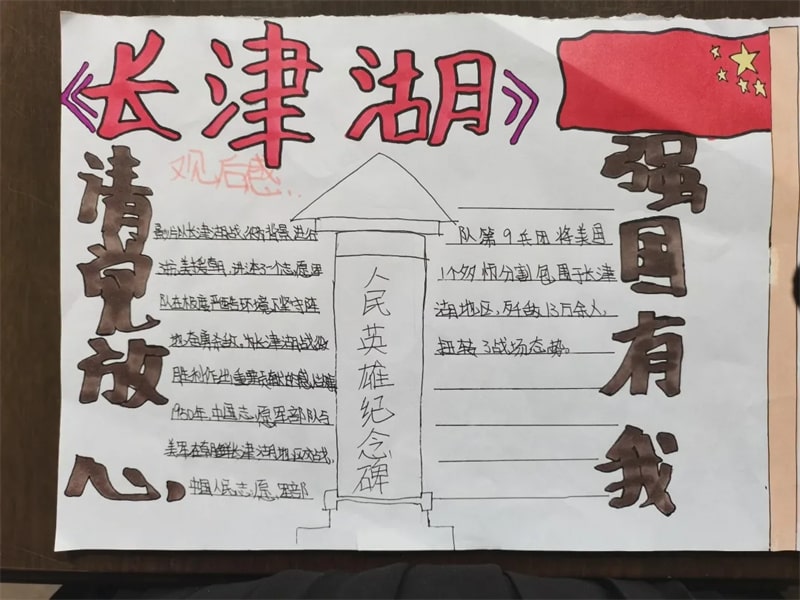 《长津湖》
观后感..
请党放心,
强国有我
人民英雄纪念碑
影片以长津湖战役为背景,进行
抗美援朝,讲述了一个志愿军
队在极度严酷环境下坚守阵
地奋勇杀敌,为长津湖战役
胜利作出重要贡献的感人
1950年,中国志愿军部队与
美军在朝鲜长津湖地区交战,
中国人民志愿军部
队第9兵团将美国
1个多师分割包围于长津
湖地区,歼敌13万余人,
扭转了战场态势。